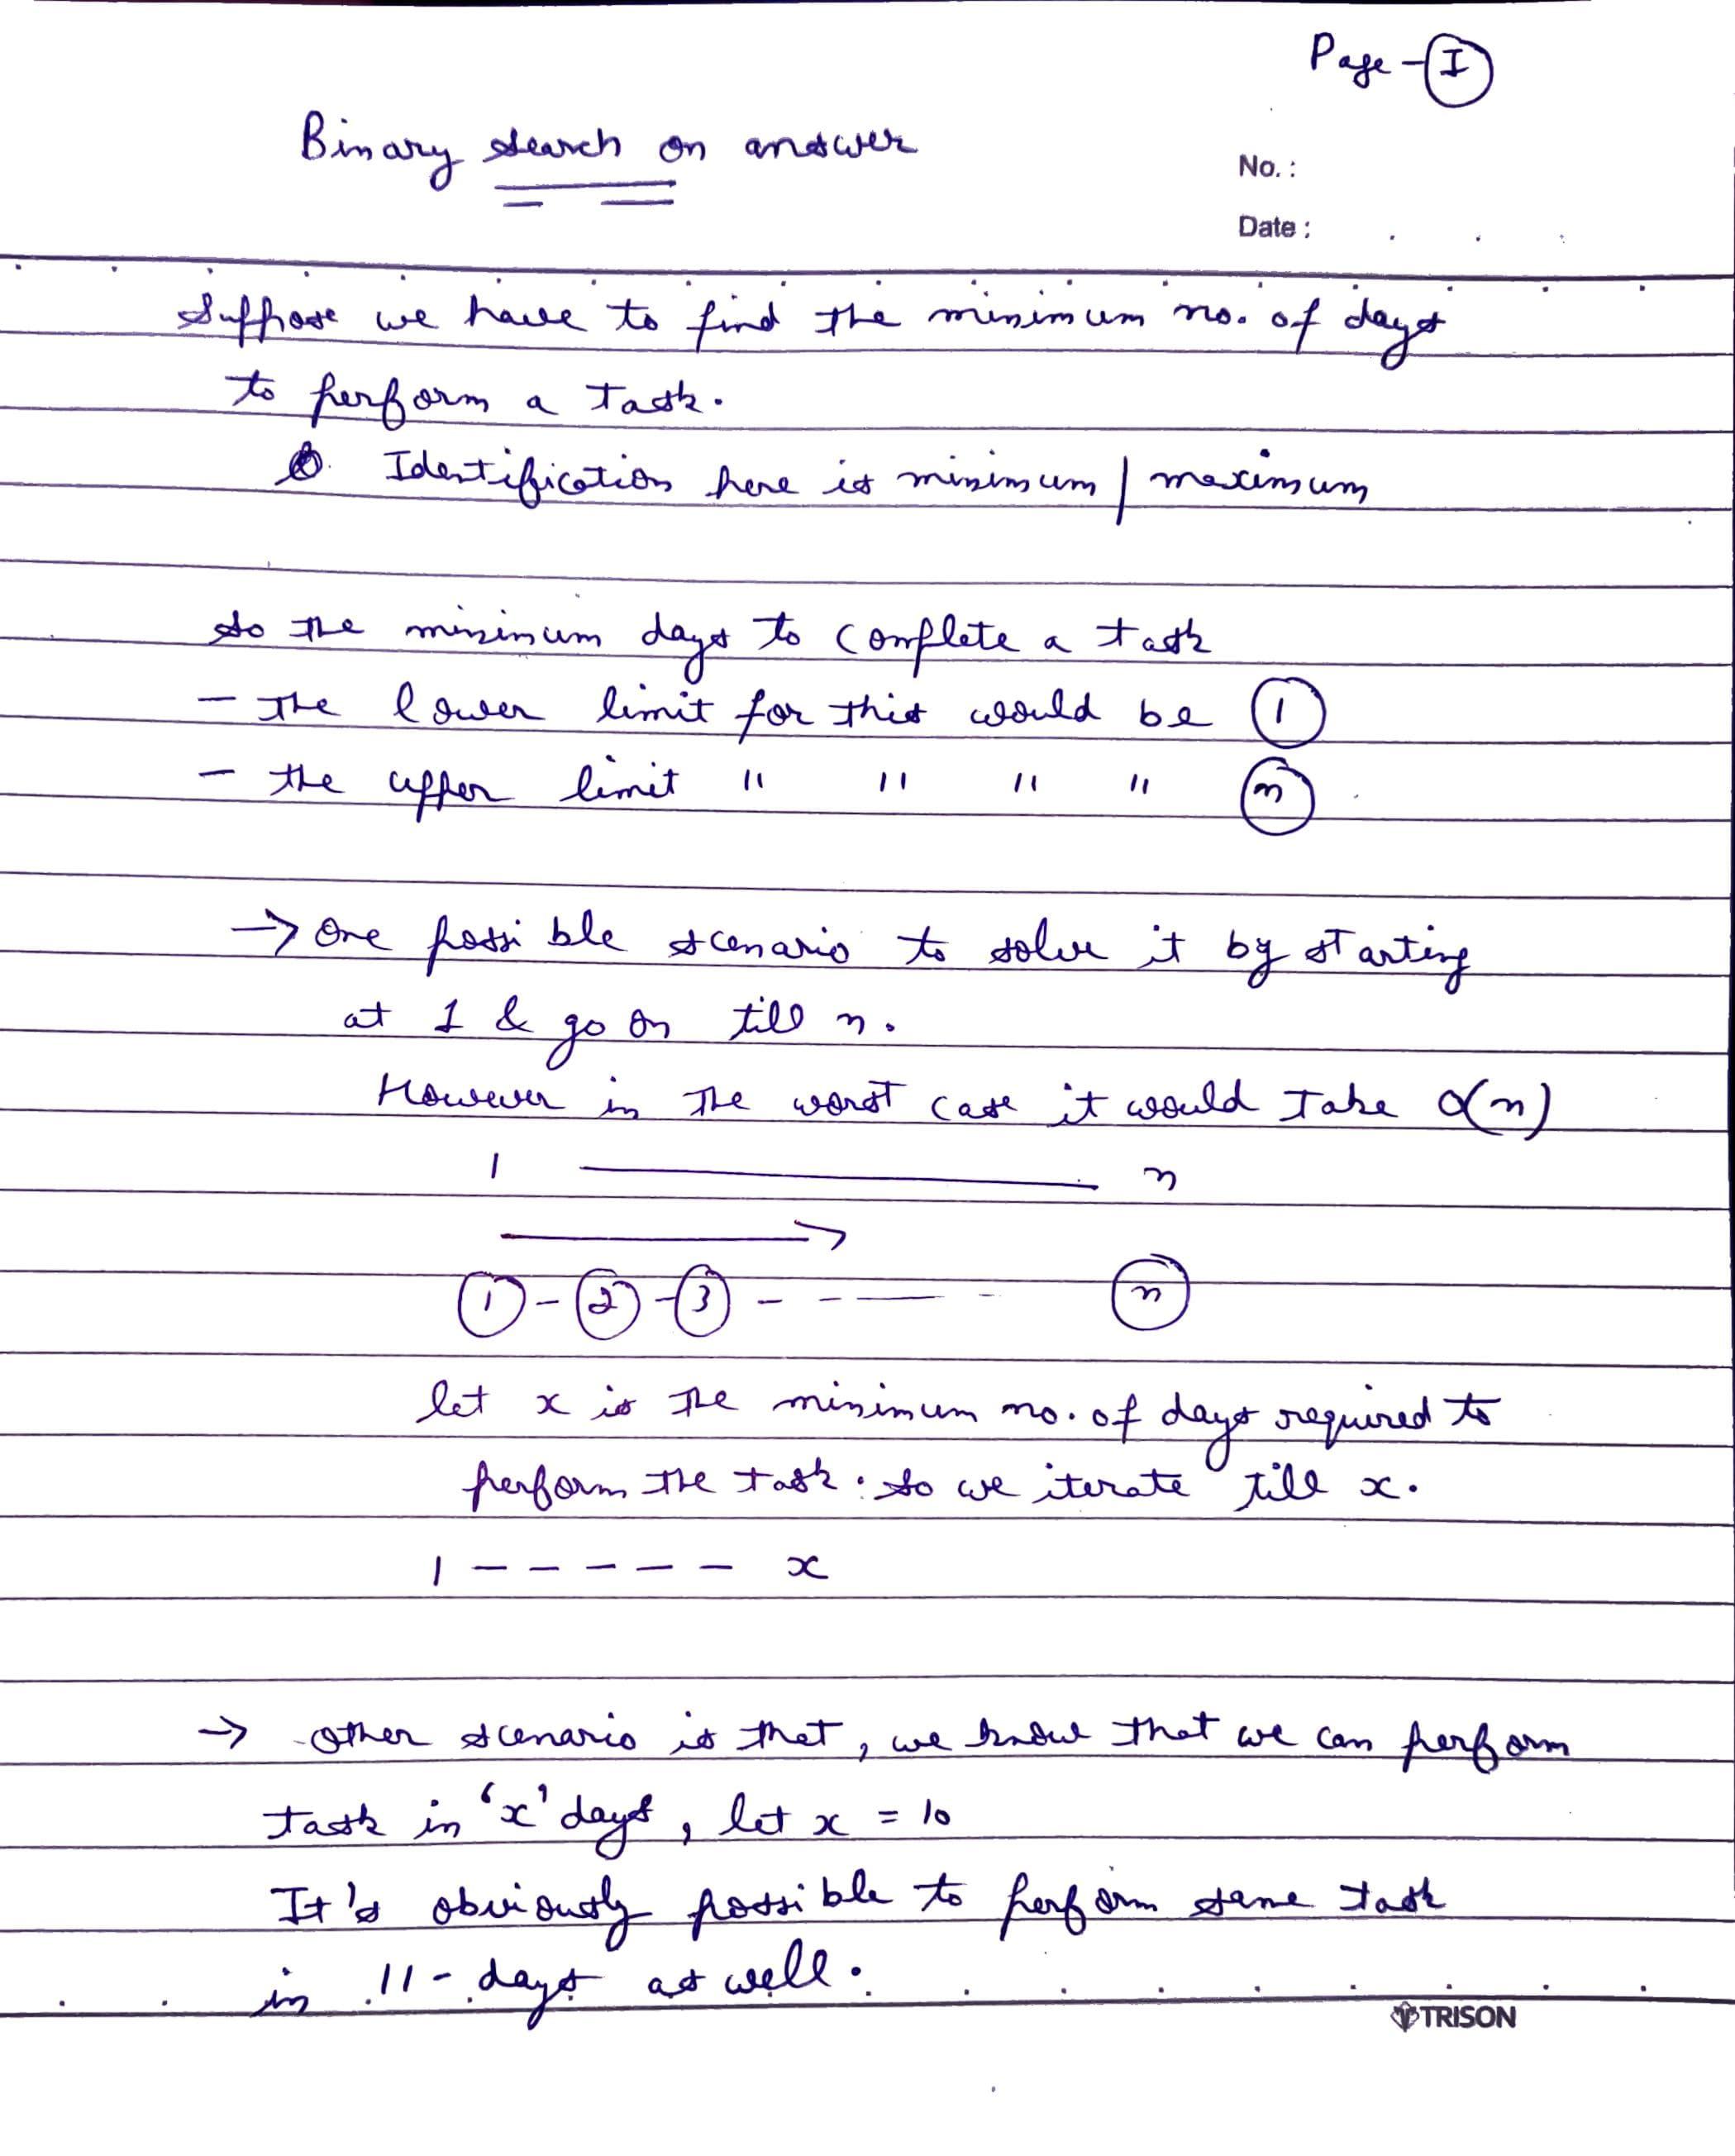 Page - I
Binary search on answer
No. :
Date :
Suppose we have to find the minimum no. of days
to perform a task.
Identification here is minimum / maximum
So the minimum days to complete a task
- the lower limit for this would be 1
- the upper limit " " " " n
→ One possible scenario to solve it by starting
at 1 & go on till n.
However in the worst case it would take O(n)
1 ——— n
1 - 2 - 3 - - — - n
let x is the minimum no. of days required to
perform the task. So we iterate till x.
1 - - - - - x
→ Other scenario is that, we know that we can perform
task in 'x' days, let x = 10
It's obviously possible to perform same task
in 11 - days as well.
TRISON